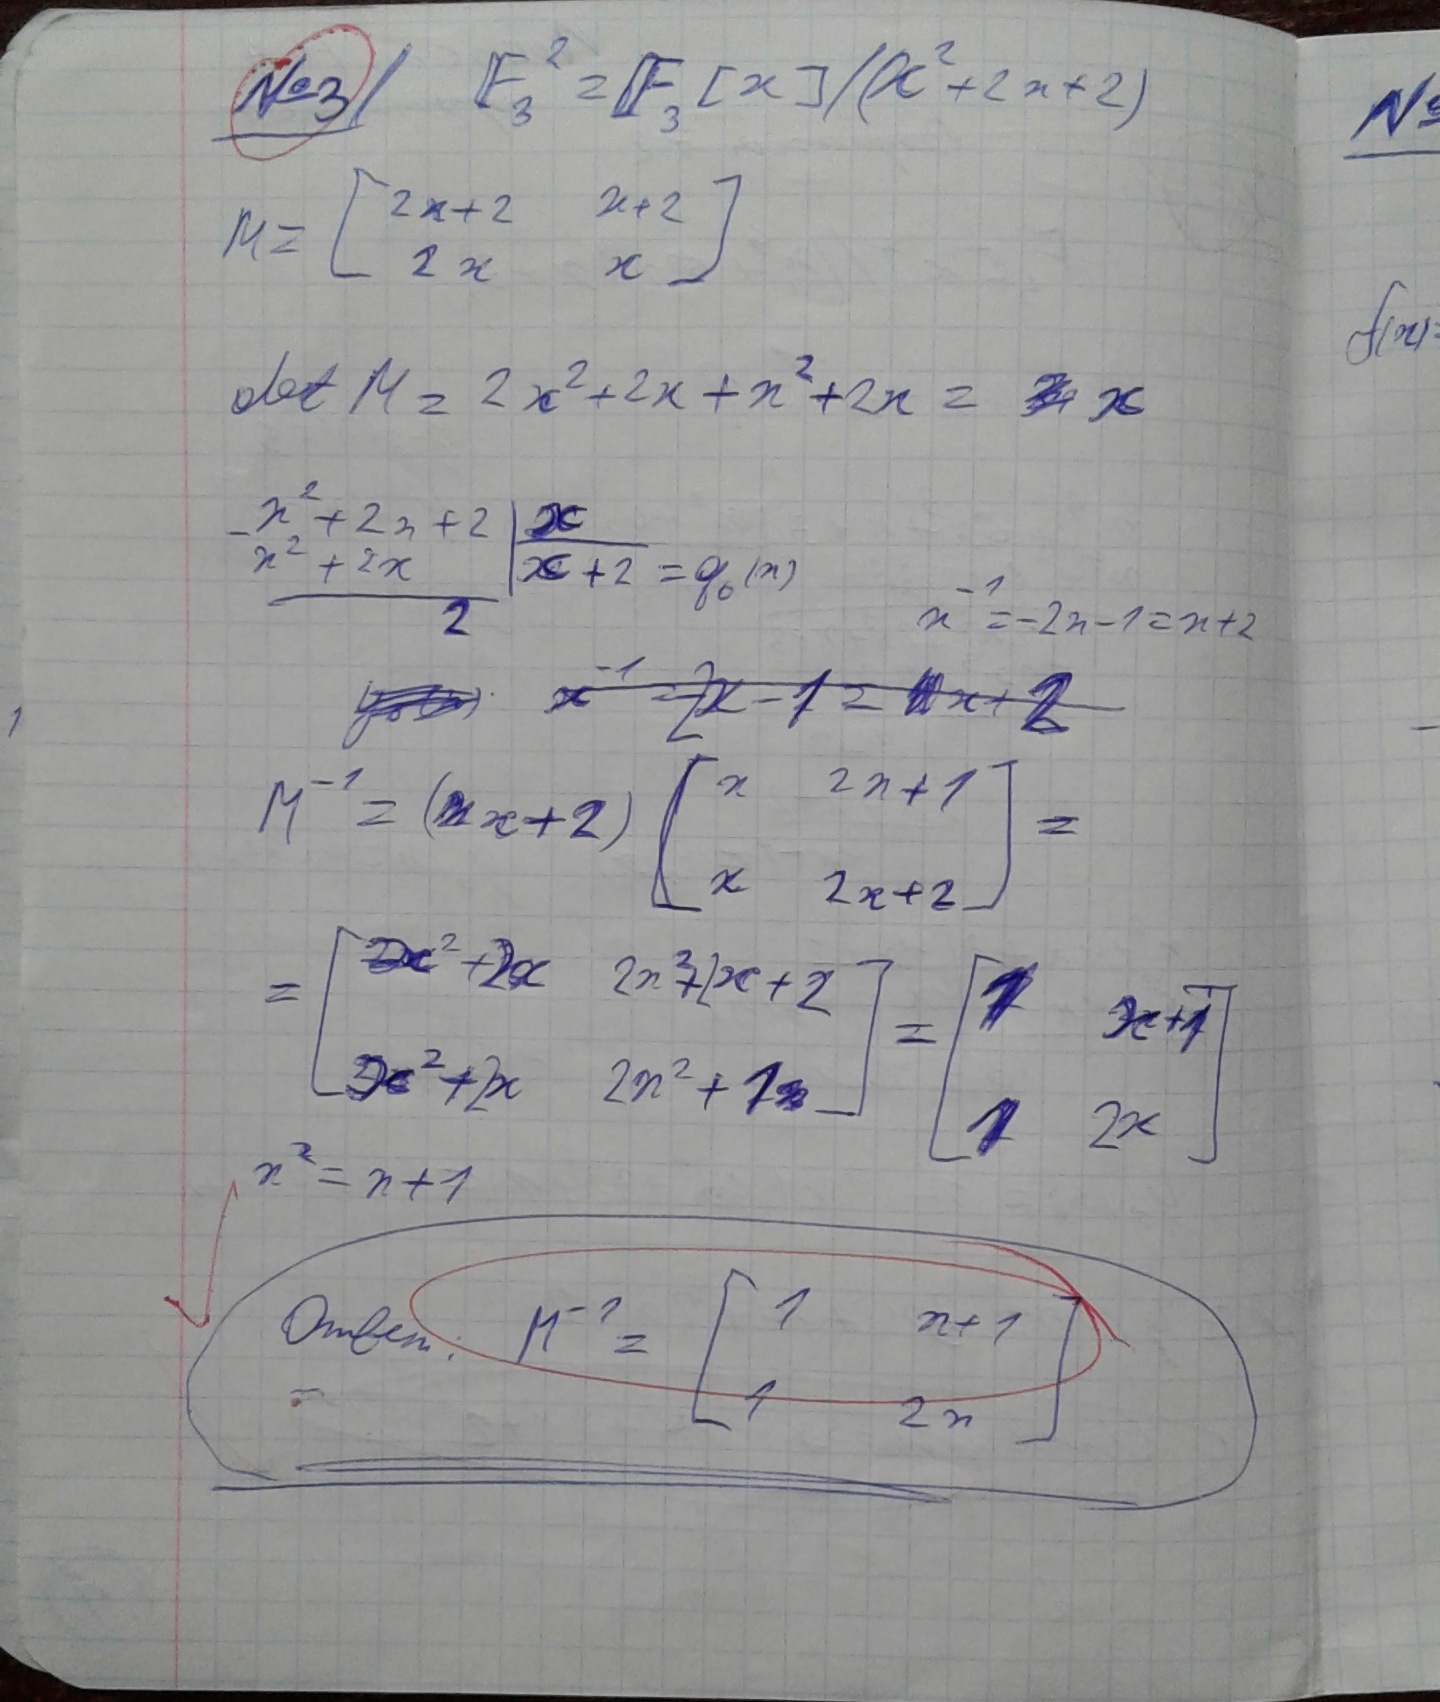 №3/ F₃² = F₃[x]/(x²+2x+2)
M = [ 2x+2 x+2
2x x ]
det M = 2x²+2x+x²+2x = x
- x²+2x+2 | x
x²+2x | x+2 = q₀(x)
2
x⁻¹ = -2x-1 = x+2
x⁻¹ = 2x-1 = x+2
M⁻¹ = (x+2) [ x 2x+1
x 2x+2 ] =
= [ x²+2x 2x²+2x+2
x²+2x 2x²+1 ] = [ 1 x+1
1 2x ]
x² = x+1
Ответ: M⁻¹ = [ 1 x+1
1 2x ]
№
f(x)=